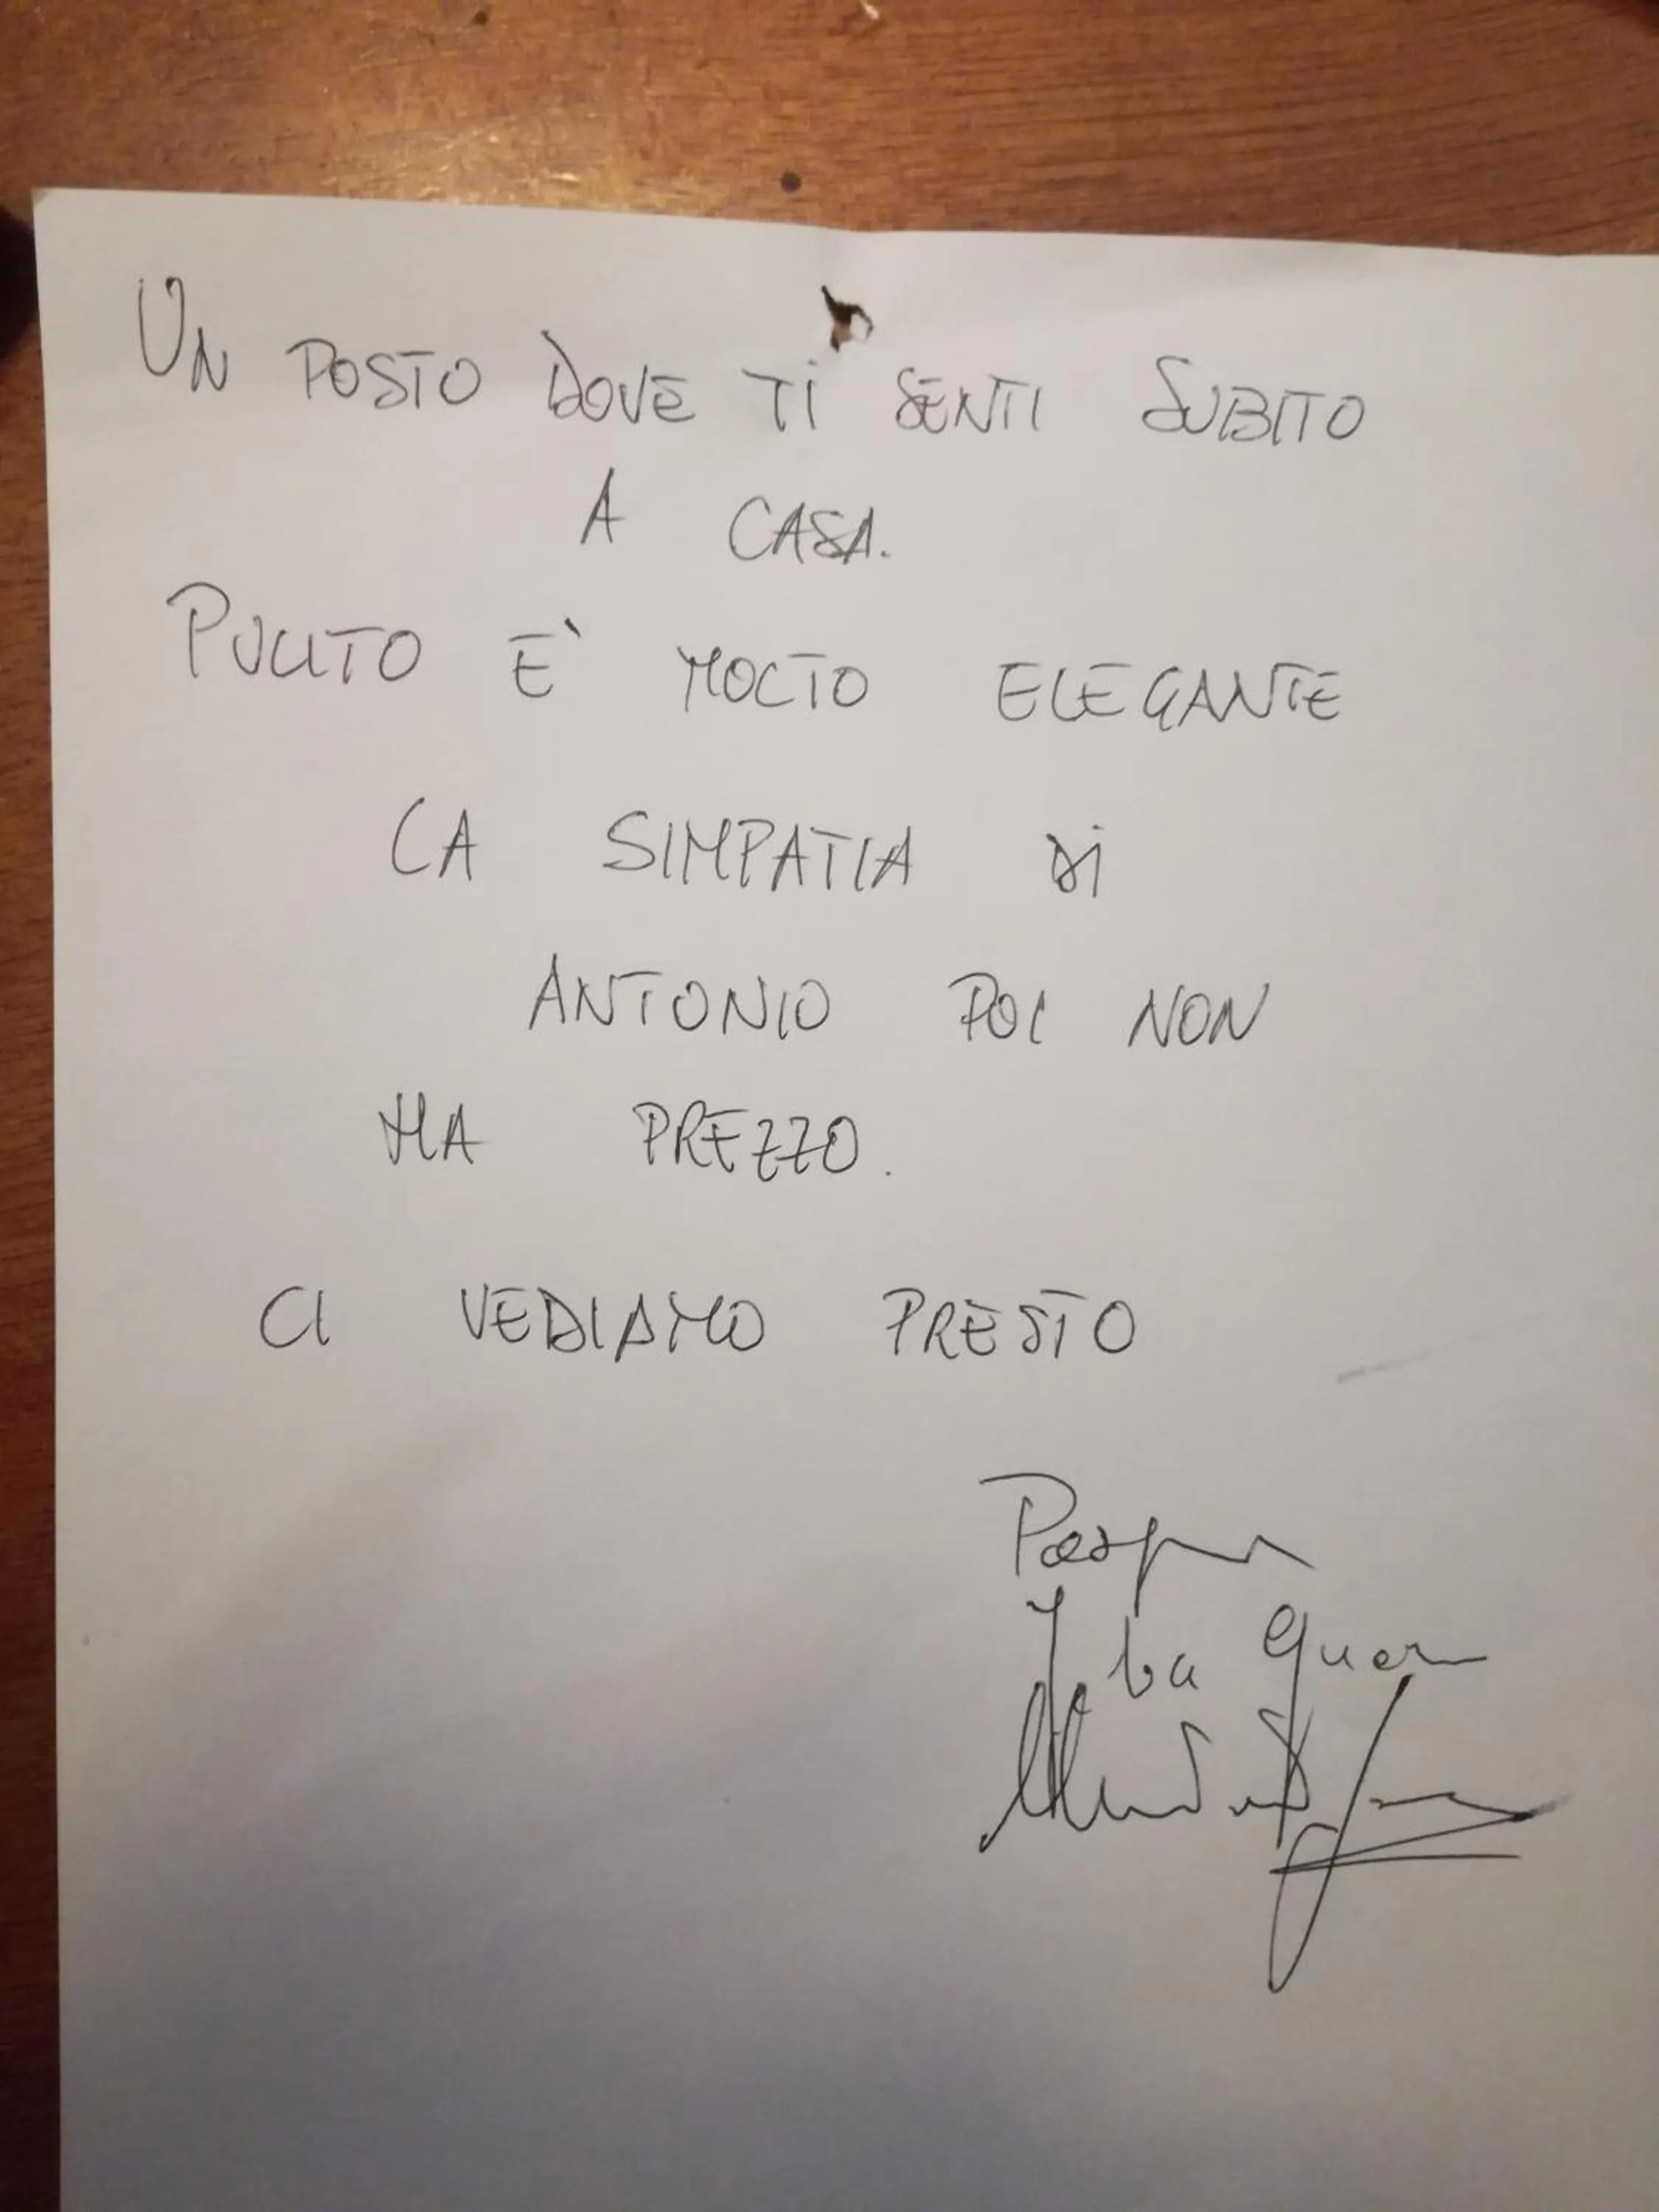 UN POSTO DOVE TI SENTI SUBITO
A CASA.
PULITO E` MOLTO ELEGANTE
LA SIMPATIA DI
ANTONIO POI NON
HA PREZZO.
CI VEDIAMO PRESTO